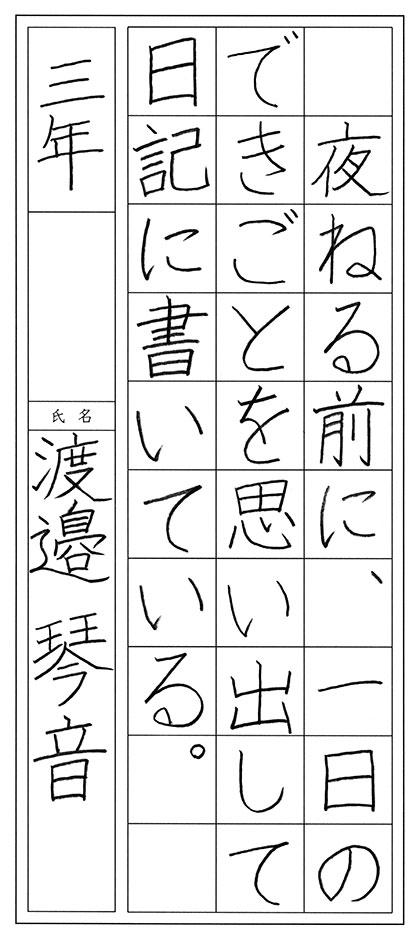 夜ねる前に、一日の
できごとを思い出して
日記に書いている。
三年
氏名
渡邉 琴音